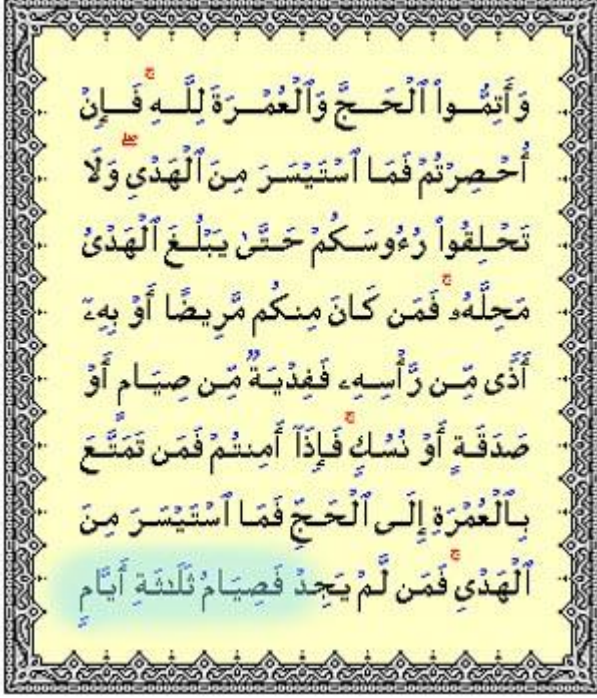 وَأَتِمُّوا۟ ٱلْحَجَّ وَٱلْعُمْرَةَ لِلَّهِ ۚ فَإِنْ
أُحْصِرْتُمْ فَمَا ٱسْتَيْسَرَ مِنَ ٱلْهَدْىِ ۖ وَلَا
تَحْلِقُوا۟ رُءُوسَكُمْ حَتَّىٰ يَبْلُغَ ٱلْهَدْىُ
مَحِلَّهُۥ ۚ فَمَن كَانَ مِنكُم مَّرِيضًا أَوْ بِهِۦٓ
أَذًى مِّن رَّأْسِهِۦ فَفِدْيَةٌ مِّن صِيَامٍ أَوْ
صَدَقَةٍ أَوْ نُسُكٍ ۚ فَإِذَآ أَمِنتُمْ فَمَن تَمَتَّعَ
بِٱلْعُمْرَةِ إِلَى ٱلْحَجِّ فَمَا ٱسْتَيْسَرَ مِنَ
ٱلْهَدْىِ ۚ فَمَن لَّمْ يَجِدْ فَصِيَامُ ثَلَـٰثَةِ أَيَّامٍ